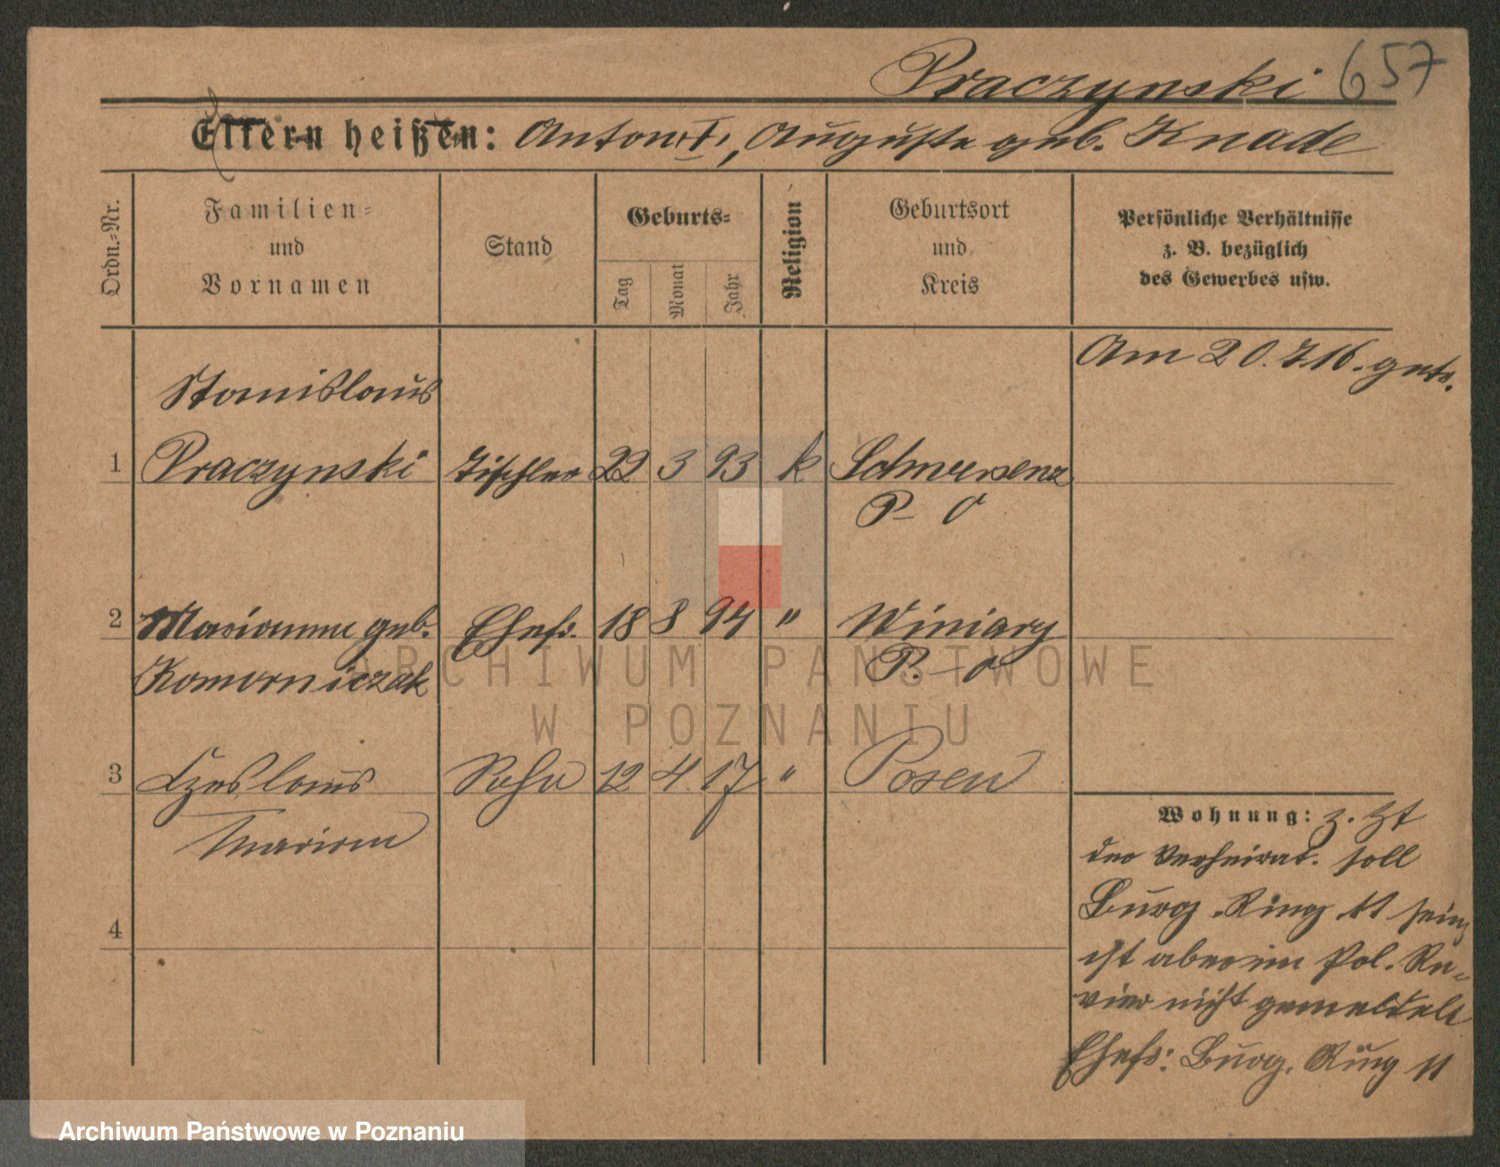 Praczynski 657
Eltern heißen: Anton †, Auguste geb. Knade
Ordn.-Nr.
Familien-
und
Vornamen
Stand
Geburts-
Tag
Monat
Jahr
Religion
Geburtsort
und
Kreis
Persönliche Verhältnisse
z. B. bezüglich
des Gewerbes usw.
Am 20.7.16. getr.
Stanislaus
1 Praczynski Tischler 22 3 93 k Schwersenz
P - O
2 Marianne geb. Ehefr. 18 8 94 " Winiary
Komorniczak P. - O
3 Czeslaus Sohn 12 4. 17 " Posen
Marian
4
Wohnung: z. Zt
der Verheirat. soll
Burg. Ring 11 sein,
ist aber im Pol. Re-
vier nicht gemeldet
Ehefr: Burg. Ring 11
ARCHIWUM PAŃSTWOWE
W POZNANIU
Archiwum Państwowe w Poznaniu